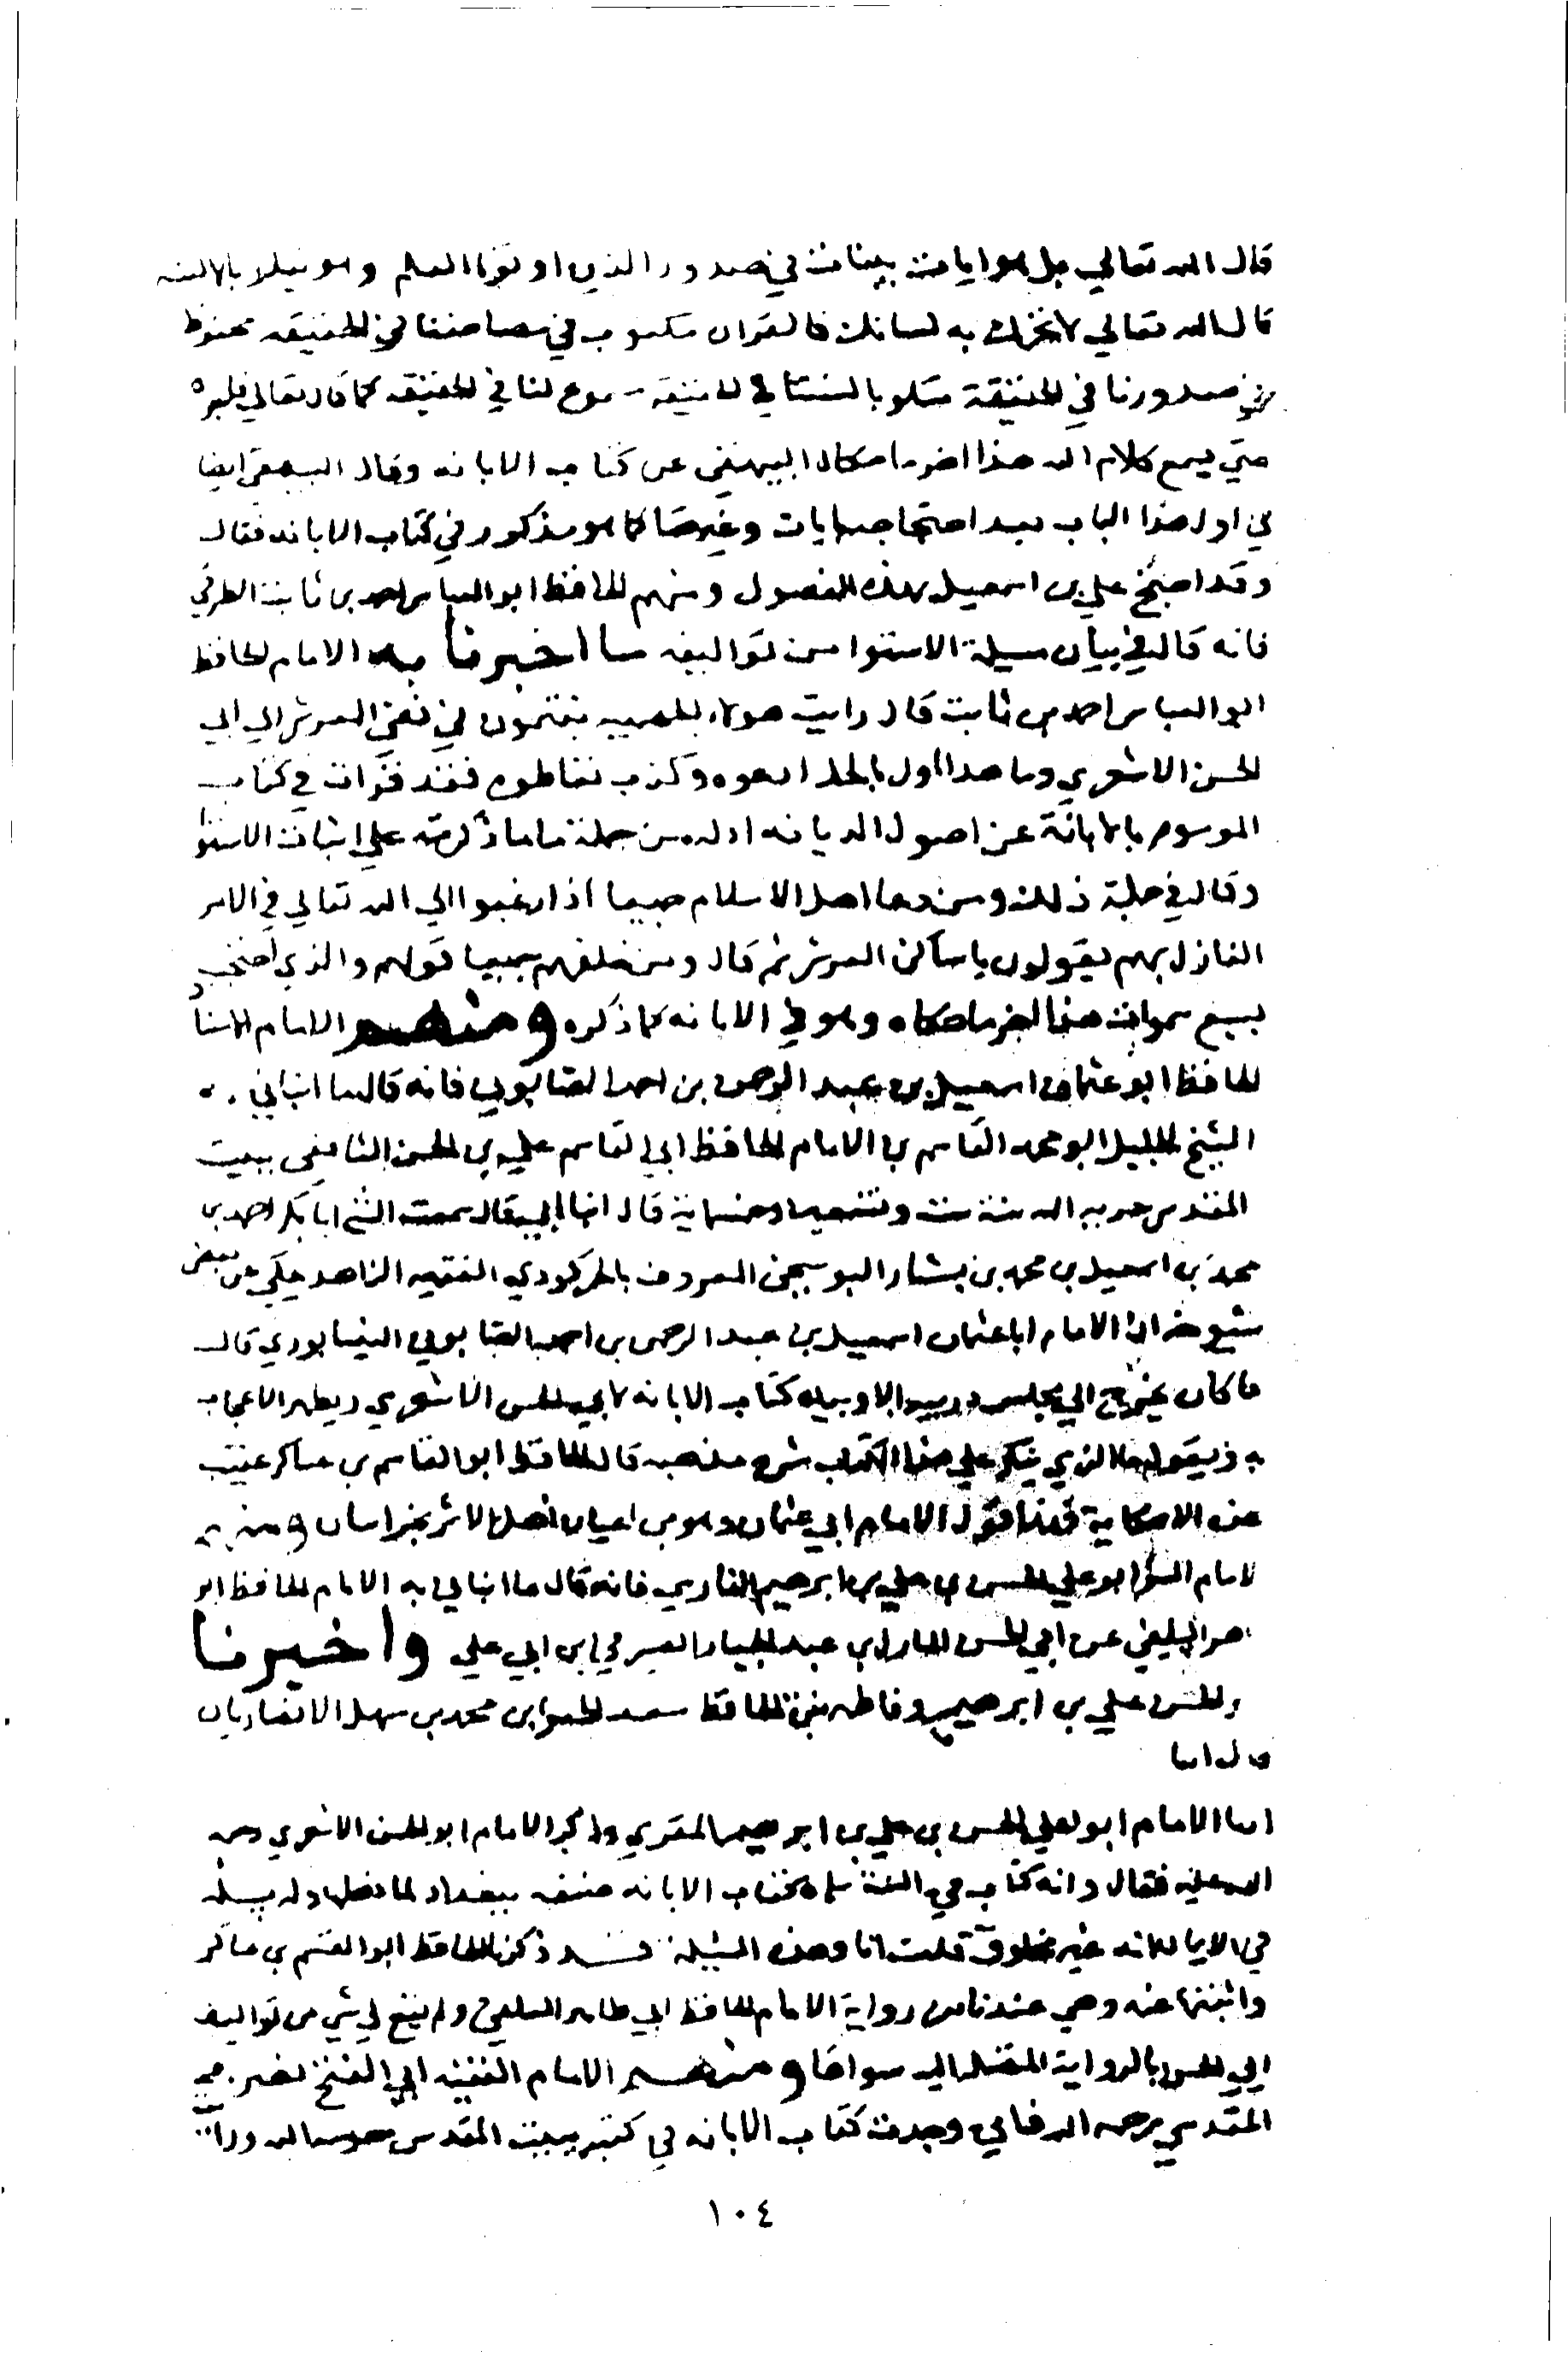 قال الله تعالي بل هو ايات بينات في صدور الذين اوتوا العلم وهو متلو بالالسنه
قال الله تعالي لا تحرك به لسانك فالقران مكتوب في مصاحفنا في الحقيقه محفوظ
في صدورنا في الحقيقة متلو بالسنتنا في الحقيقة مسموع لنا في الحقيقه كما قال تعالي فاجره
حتي يسمع كلام الله هذا اخر ما حكاه البيهقي عن كتاب الابانه وقال البيهقي ايضا
في اول هذا الباب بعد احتجاجه بايات وغيرها كما هو مذكور في كتاب الابانه فقال
وقد احتج علي بن اسمعيل بهذه الفصول ومنهم الحافظ ابو العباس احمد بن ثابت الطرقي
فانه قال في بيان مسيلة الاستوا من تواليفه ما اخبرنا به الامام الحافظ
ابو العباس احمد بن ثابت قال رايت هولاء الجهميه ينتمون في نفي العرش الي ابي
الحسن الاشعري وما هذا باول باطل ادعوه وكذب تعاطوه فقد قرات في كتابه
الموسوم بالابانة عن اصول الديانه ادله من جملة ما ذكرته علي اثبات الاستوا
وقال في جملة ذلك ومن دعا اهل الاسلام جميعا اذا رغبوا الي الله تعالي في الامر
النازل بهم يقولون يا ساكن العرش ثم قال ومن حلفهم جميعا قولهم والذي احتجب
بسبع سموات هذا اخر ما حكاه وهو في الابانه كما ذكره ومنهم الامام الاستاذ
الحافظ ابو عثمان اسمعيل بن عبد الرحمن بن احمد الصابوني فانه قال ما انباني به
الشيخ الجليل ابو محمد القاسم بن الامام الحافظ ابي القاسم علي بن الحسن الشافعي ببيت
المقدس حرسه الله سنة ست وتسعين وخمسماية قال انبا ابي قال سمعت الشيخ ابا بكر احمد بن
محمد بن اسمعيل بن محمد بن بشار البوسنجي المعروف بالخركردي الفقيه الزاهد يحكي عن بعض
شيوخه ان الامام ابا عثمان اسمعيل بن عبد الرحمن بن احمد الصابوني النيسابوري قال
ما كان يخرج الي مجلس درسه الا وبيده كتاب الابانه لابي الحسن الاشعري ويظهر الاعجاب
به ويقول ما الذي ينكر علي من هذا الكتاب شرح مذهبه قال الحافظ ابو القاسم بن عساكر عقيب
هذه الحكاية فهذا قول الامام ابي عثمان وهو من اعيان اهل الاثر بخراسان ومنهم
الامام ابو علي الحسن بن علي بن ابرهيم الفارسي فانه قال ما انباني به الامام الحافظ ابو
طاهر السلفي عن ابي الحسن المبارك بن عبد الجبار الصيرفي ابن ابي علي واخبرنا
والحسن علي بن ابرهيم وفاطمه بنت الحافظ سعد الخير ابن محمد بن سهل الانصاريان
قال انبا
انبا الامام ابو علي الحسن بن علي بن ابرهيم المقري وذكر الامام ابو الحسن الاشعري رحمه
الله عليه فقال وله كتاب في السنة سماه كتاب الابانه صنفه ببغداد لما دخلها وله مسيلة
في الايمان انه غير مخلوق قلت انا وهذه المسيلة قد ذكرها الحافظ ابو القسم بن عساكر
واثبتها عنه وهي عندنا من رواية الامام الحافظ ابي طاهر السلفي ولم يقع لي شي من تواليف
ابي الحسن بالرواية المتصلة اليه سواها ومنهم الامام الفقيه ابو الفتح نصر
المقدسي رحمه الله فاني وجدت كتاب الابانه في كتبه ببيت المقدس حرسه الله ورايت
١٠٤